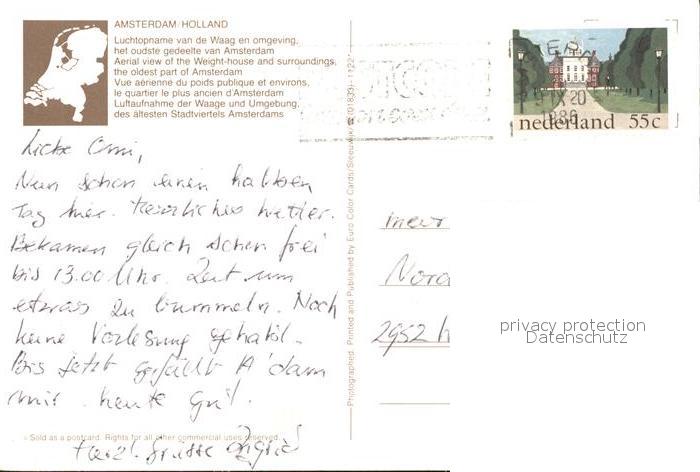 AMSTERDAM/HOLLAND
Luchtopname van de Waag en omgeving,
het oudste gedeelte van Amsterdam
Aerial view of the Weight-house and surroundings,
the oldest part of Amsterdam
Vue aérienne du poids publique et environs,
le quartier le plus ancien d'Amsterdam
Luftaufnahme der Waage und Umgebung,
des ältesten Stadtviertels Amsterdams
Liebe Omi,
Nun schon einen halben
Tag hier. Herrliches Wetter.
Bekamen gleich schon frei
bis 13.00 Uhr. Zeit um
etwas zu bummeln. Noch
keine Vorlesung gehabt.
Bis jetzt gefällt A'dam
mir heute gut.
Herzl. Grüsse Ingrid
Sold as a postcard. Rights for all other commercial uses reserved.
Photographed, Printed and Published by Euro Color Cards/Sleeuwijk/
nederland 55c
IX 20
Mevr
Nord
2952 h
privacy protection
Datenschutz